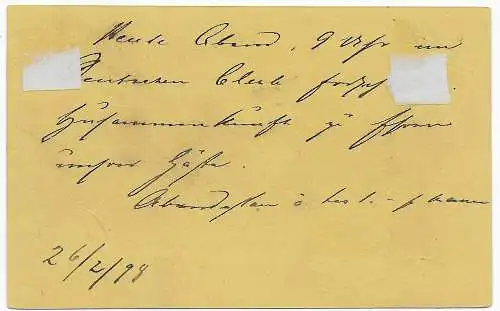 Heute Abend, 9 Uhr im
Deutschen Club
Zusammenkunft zu Ehren
unsrer Gäste.
Abendessen
26/2/98